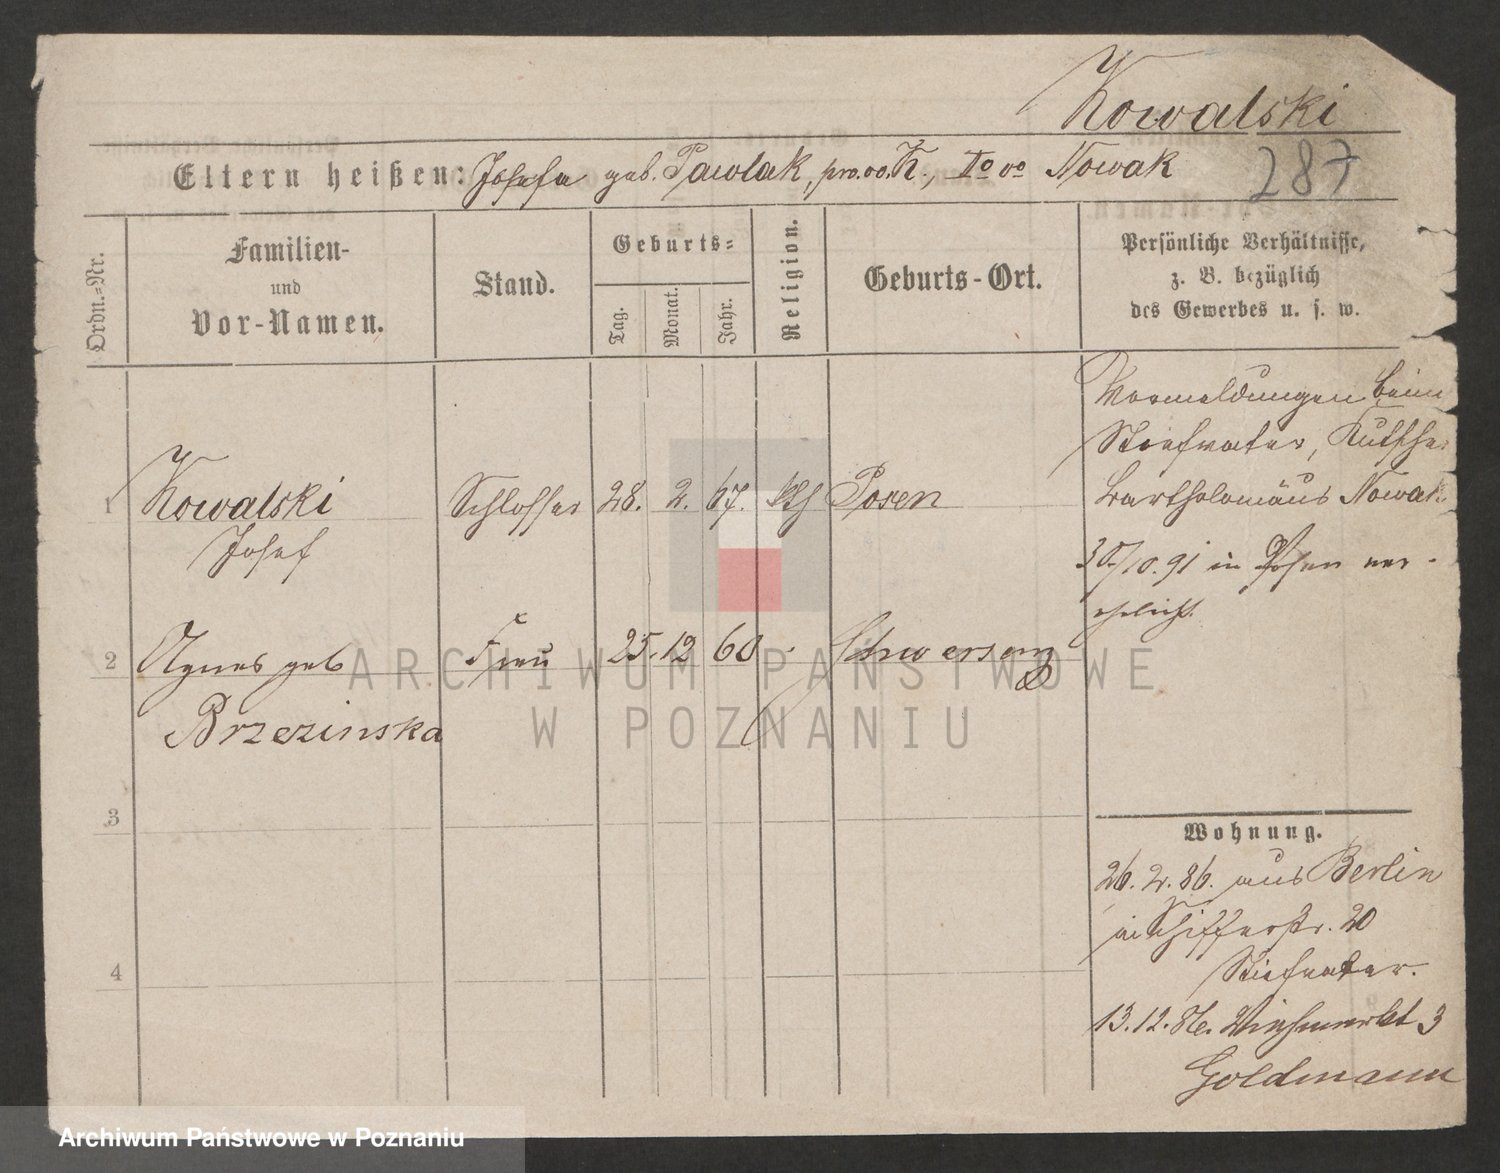 Kowalski
Eltern heißen: Josefa geb. Pawlak, pro. vo. K., IIo vo Nowak
287
Ordn.=Nr.
Familien-
und
Vor-Namen.
Stand.
Geburts=
Tag.
Monat.
Jahr.
Religion.
Geburts-Ort.
Persönliche Verhältnisse,
z. B. bezüglich
des Gewerbes u. s. w.
1 Kowalski Schlosser 28. 2. 67. kth Posen
Josef
2 Agnes geb Frau 25. 12 68 Schwersenz
Brzezinska
3
4
Vormeldungen beim
Stiefvater, Kutscher
Bartholomäus Nowak
30/10.91 in Posen ver-
ehelicht.
Wohnung.
26. 2. 86. aus Berlin
in Schifferstr. 20
Stiefvater.
13.12.86. Viehmarkt 3
Goldmann
ARCHIWUM PAŃSTWOWE
W POZNANIU
Archiwum Państwowe w Poznaniu